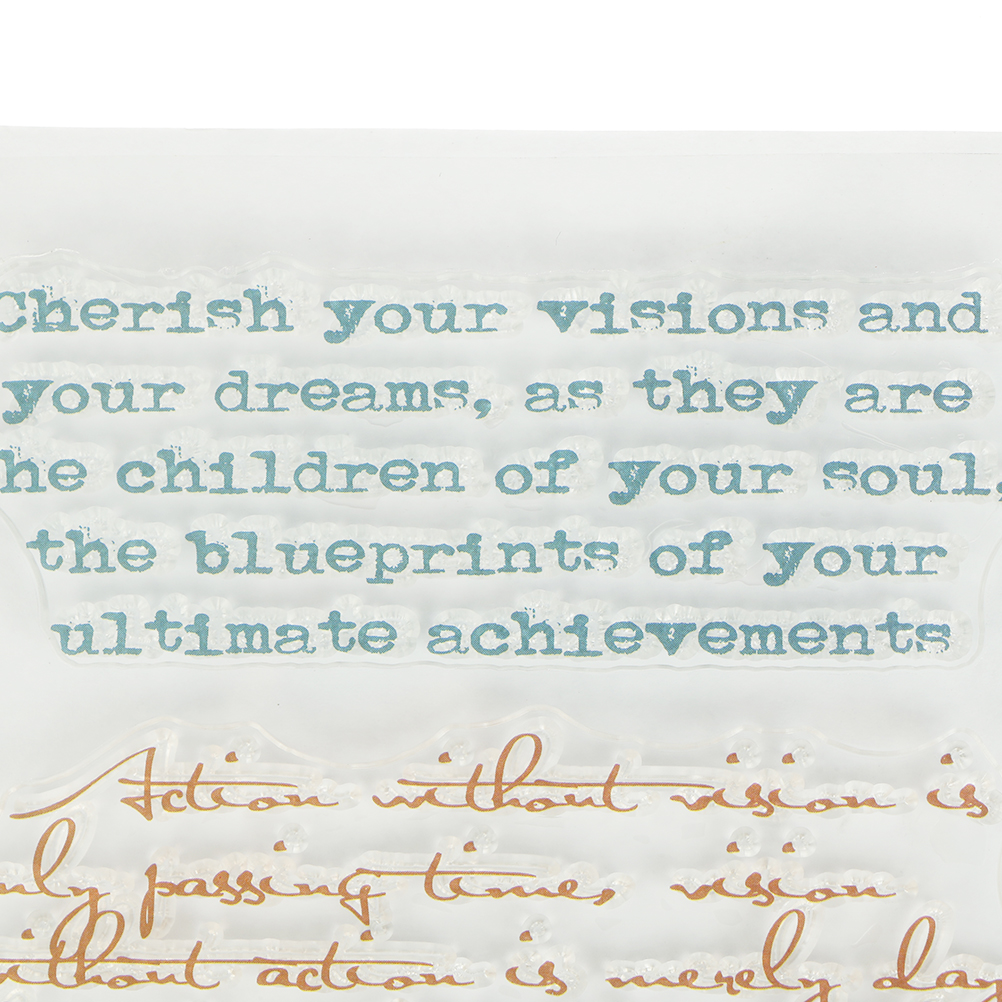 Cherish your visions and
your dreams, as they are
he children of your soul.
the blueprints of your
ultimate achievements
Action without vision is
nly passing time, vision
ithout action is merely day